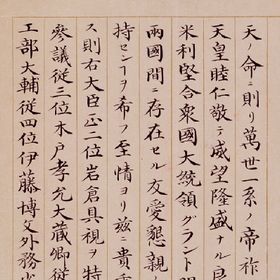 天ノ命ニ則リ萬世一系ノ帝祚
天皇睦仁敬テ威望隆盛ナル良
米利堅合衆國大統領グラント
兩國間ニ存在セル友愛懇親
持センヿヲ希フ至情ヨリ茲ニ貴重
ス則右大臣正二位岩倉具視ヲ特
參議從三位木戸孝允大藏卿從
工部大輔從四位伊藤博文外務少